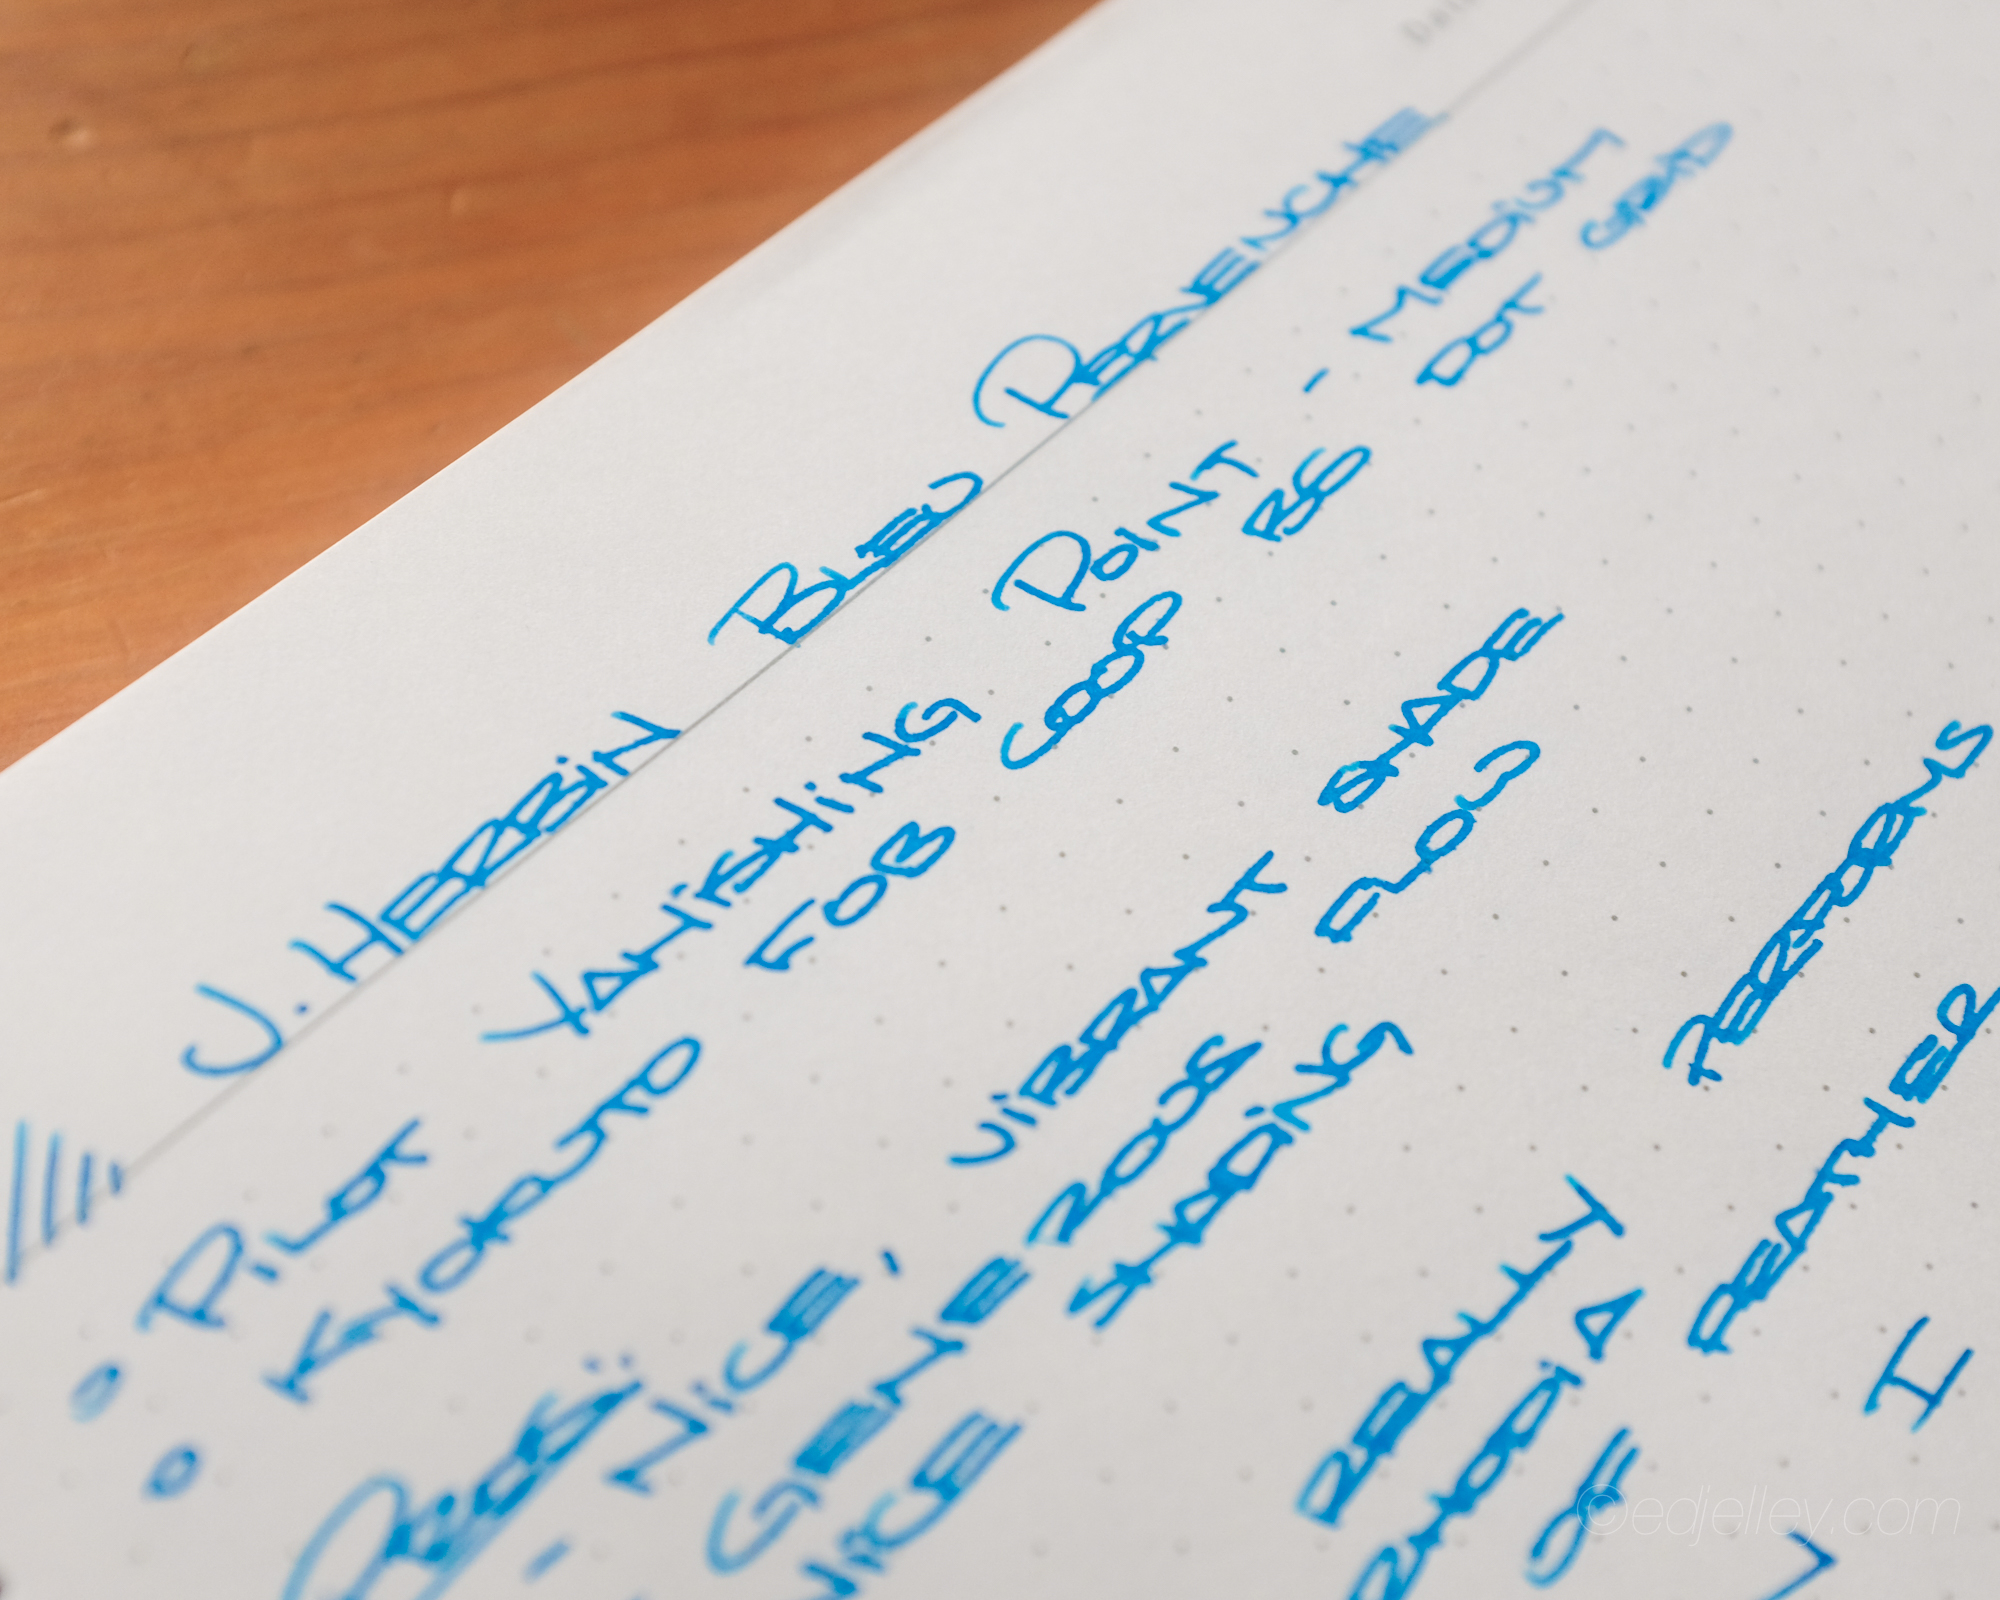 Date
J. HERBIN BLEU PERVENCHE
PILOT VANISHING POINT - MEDIUM
KYOKUTO FOB COOP B5 DOT GRID
PROS:
- NICE, VIBRANT SHADE
- GENEROUS FLOW
NICE SHADING
REALLY PERFORMS
RHODIA A FEATHER
OF I
©edjelley.com